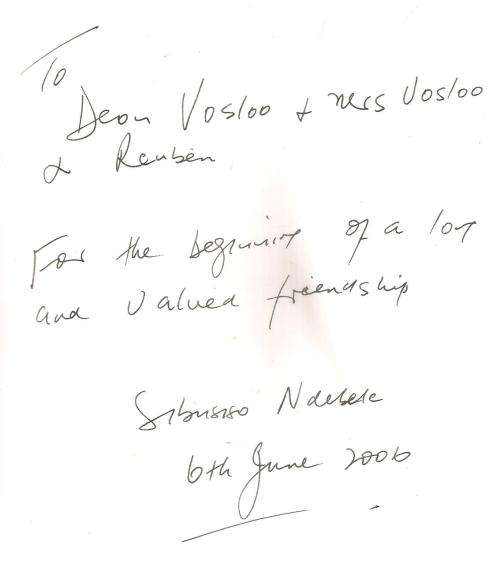 To
Deon Vosloo + Mrs Vosloo
& Reuben
For the beginning of a long
and valued friendship
Sibusiso Ndebele
6th June 2006